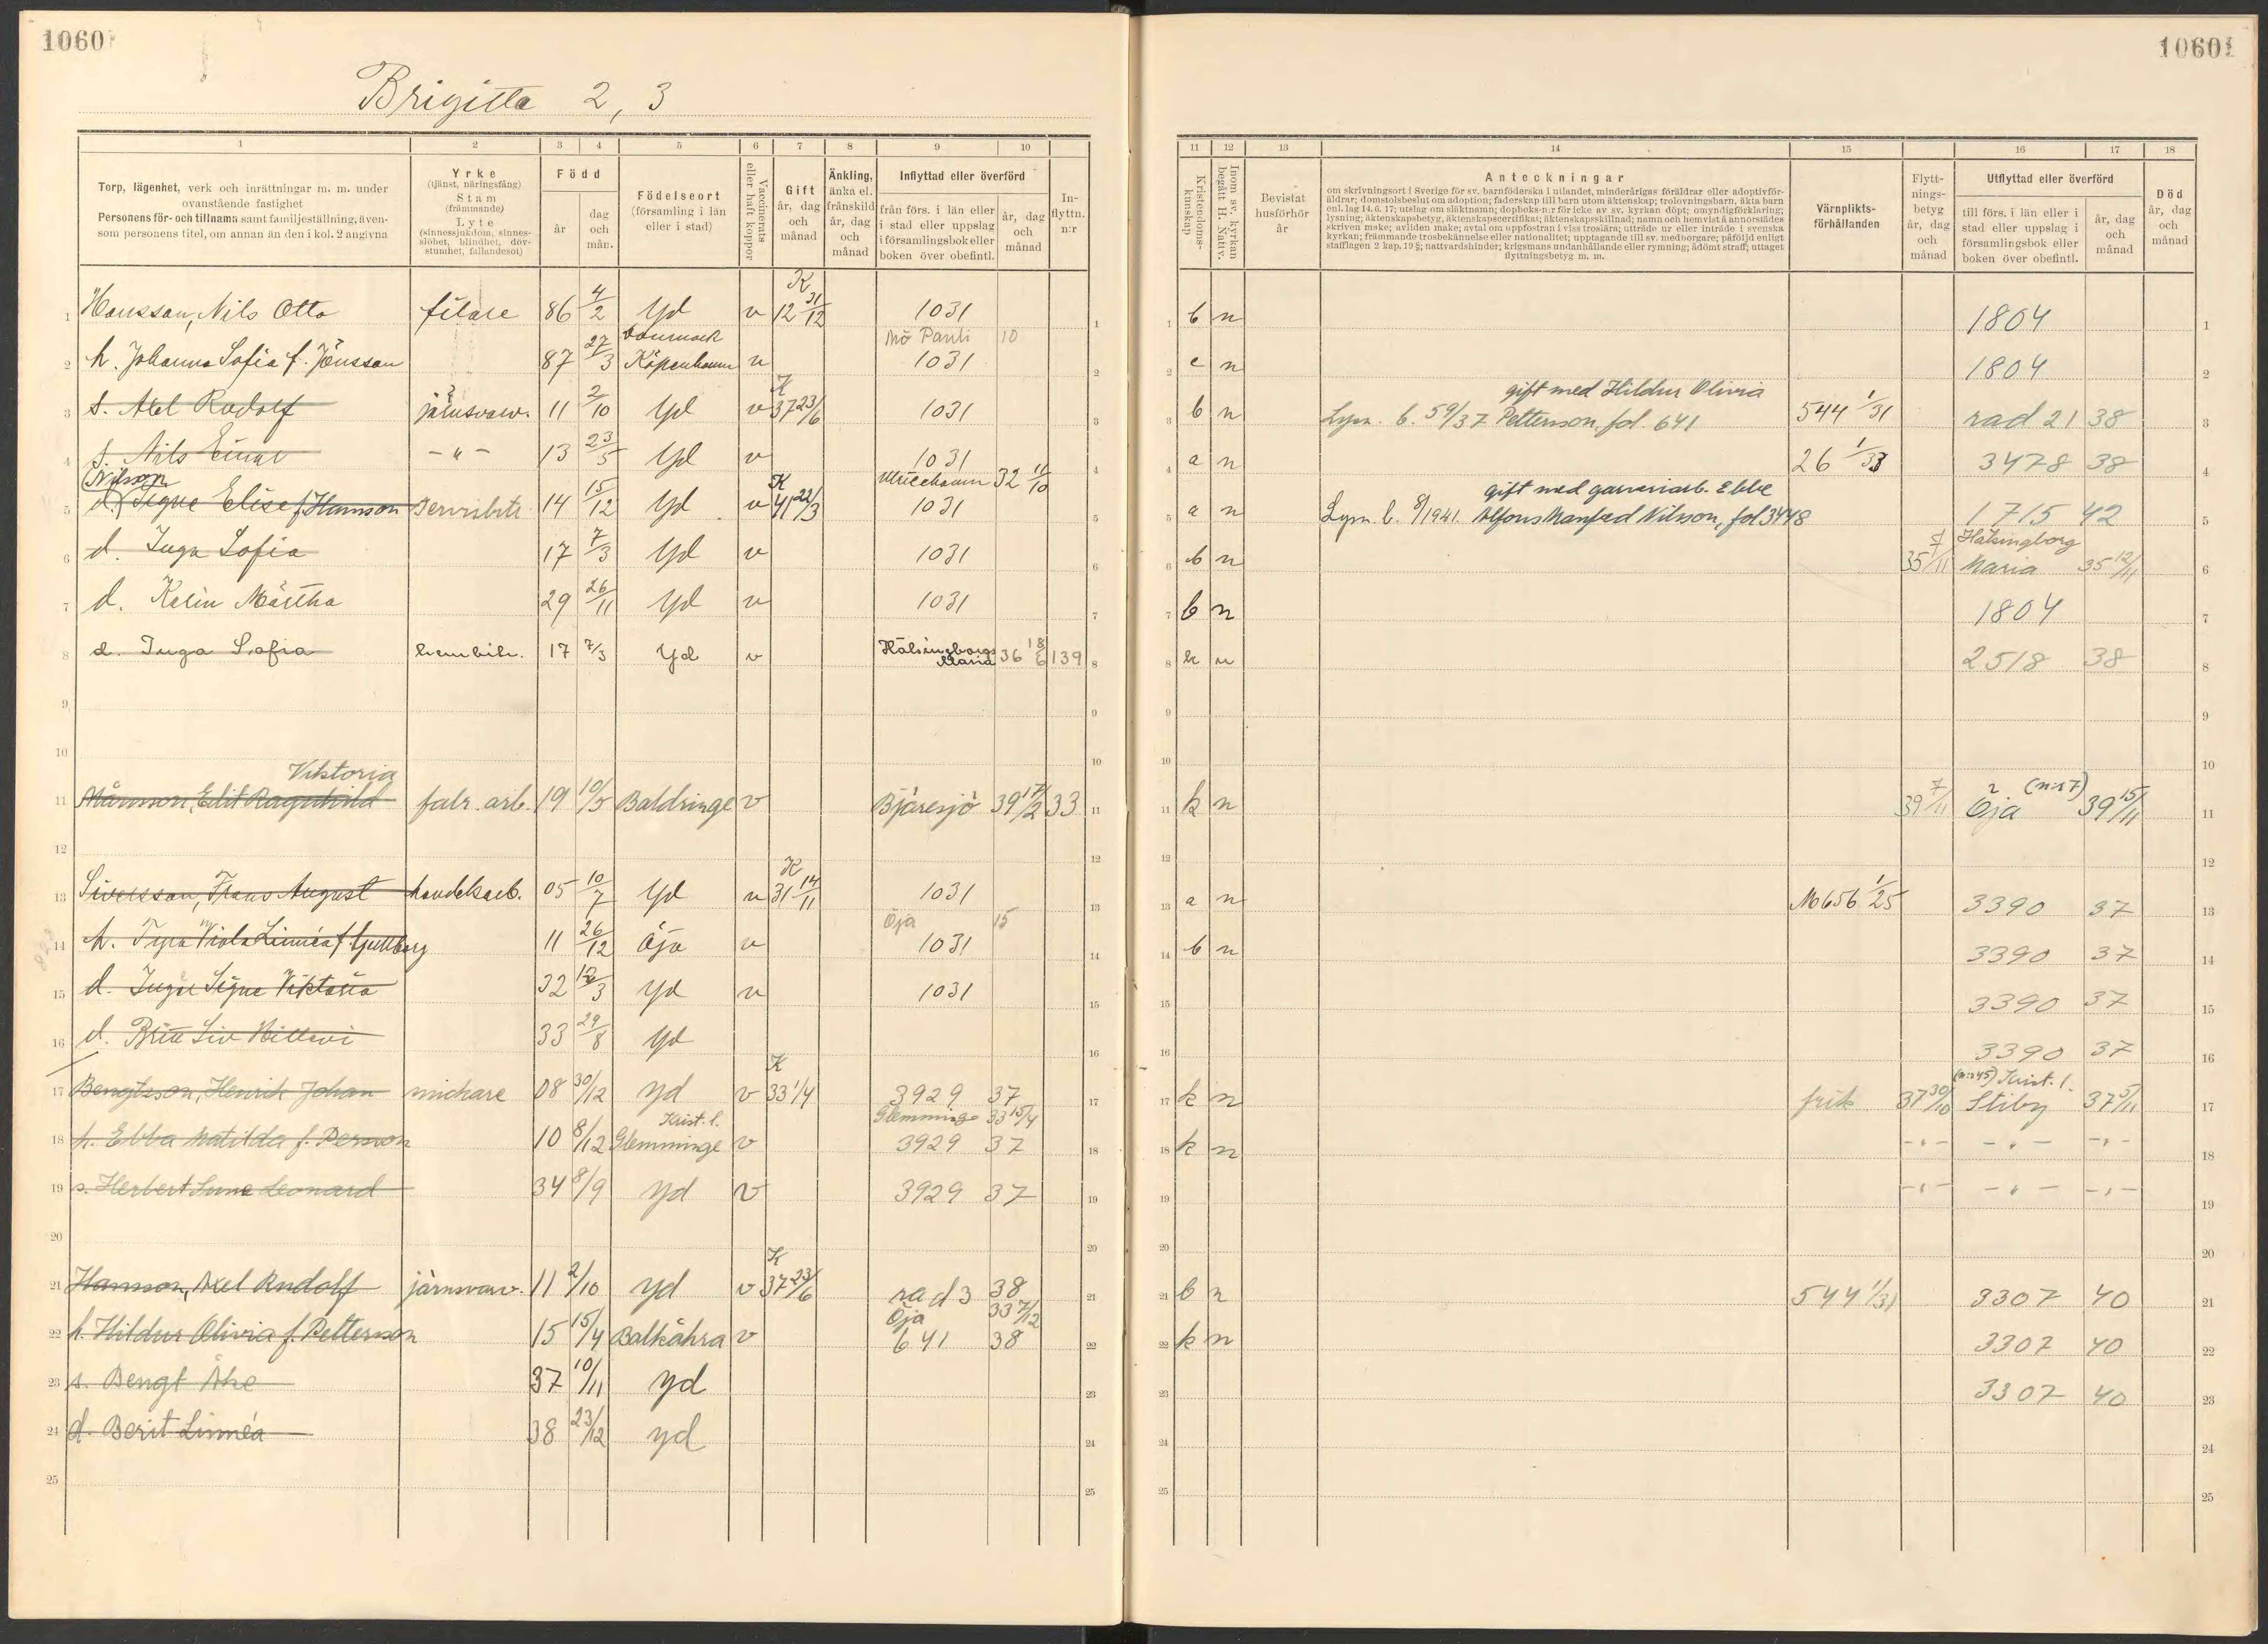 1060
Brigitta 2, 3
1 2 3 4 5 6 7 8 9 10
Torp, lägenhet, verk och inrättningar m. m. under
ovanstående fastighet
Personens för- och tillnama samt familjeställning, även-
som personens titel, om annan än den i kol. 2 angivna
Yrke
(tjänst, näringsfång)
Stam
(främmande)
Lyte
(sinnessjukdom, sinnes-
slöhet, blindhet, döv-
stumhet, fallandesot)
Född
år
dag
och
mån.
Födelseort
(församling i län
eller i stad)
Vaccinerats
eller haft koppor
Gift
år, dag
och
månad
Änkling,
änka el.
frånskild
år, dag
och
månad
Inflyttad eller överförd
från förs. i län eller
i stad eller uppslag
i församlingsbok eller
boken över obefintl.
år, dag
och
månad
In-
flyttn.
n:r
K
1 Hansson, Nils Otto filare 86 4/2 Yd v 12 31/12 1031 1
Danmark Mö Pauli 10
2 h. Johanna Sofia f. Jönsson 87 27/3 Köpenhamn v 1031 2
K
3 s. Axel Rudolf järnsvarv. 11 2/10 Yd v 37 23/6 1031 3
4 s. Nils Einar -"- 13 23/5 Yd v 1031 4
Nilsson K Ulricehamn 32 11/10
5 d. Signe Elise f. Hansson Servitris 14 15/12 Yd v 41 22/3 1031 5
6 d. Inga Sofia 17 7/3 Yd v 1031 6
7 d. Karin Märtha 29 26/11 Yd v 1031 7
8 d. Inga Sofia hembitr. 17 7/3 Yd v Hälsingborgs Maria 36 18/6 139 8
9 9
10 10
Viktoria
11 Månsson, Edit Ragnhild fabr. arb. 19 10/5 Baldringe v Bjäresjö 39 17/2 33 11
12 12
K
13 Siversson, Frans August handelsarb. 05 10/7 Yd v 31 14/11 1031 13
Öja 15
14 h. Tyra Viola Linnéa f. Gyllborg 11 26/12 Öja v 1031 14
15 d. Inger Signe Viktoria 32 12/3 Yd v 1031 15
16 d. Britt Siv Hillevi 33 29/8 Yd 16
K
17 Bengtsson, Henrik Johan mickare 08 30/12 Yd v 33 1/4 3929 37 17
Krist. l. Glemminge 33 15/4
18 h. Ebba Matilda f. Persson 10 8/12 Glemminge v 3929 37 18
19 s. Herbert Sune Leonard 34 8/9 Yd v 3929 37 19
20 20
K
21 Hansson, Axel Rudolf järnsvarv. 11 2/10 Yd v 37 23/6 rad 3 38 21
Öja 33 7/12
22 h. Hildur Olivia f. Pettersson 15 15/4 Balkåkra v 641 38 22
23 s. Bengt Åke 37 10/11 Yd 23
24 d. Berit Linnéa 38 23/12 Yd 24
25 25
1060
11 12 13 14 15 16 17 18
Kristendoms-
kunskap
Inom sv. kyrkan
begått H. Nattv.
Bevistat
husförhör
år
Anteckningar
om skrivningsort i Sverige för sv. barnföderska i utlandet, minderårigas föräldrar eller adoptivför-
äldrar; domstolsbeslut om adoption; faderskap till barn utom äktenskap; trolovningsbarn, äkta barn
enl. lag 14. 6. 17; utslag om släktnamn; dopboks-n:r för icke av sv. kyrkan döpt; omyndigförklaring;
lysning; äktenskapsbetyg, äktenskapscertifikat; äktenskapsskillnad; namn och hemvist å annorstädes
skriven make; avliden make; avtal om uppfostran i viss troslära; utträde ur eller inträde i svenska
kyrkan; främmande trosbekännelse eller nationalitet; upptagande till sv. medborgare; påföljd enligt
strafflagen 2 kap. 19 §; nattvardshinder; krigsmans undanhållande eller rymning; ådömt straff; uttaget
flyttningsbetyg m. m.
Värnplikts-
förhållanden
Flytt-
nings-
betyg
år, dag
och
månad
Utflyttad eller överförd
till förs. i län eller i
stad eller uppslag i
församlingsbok eller
boken över obefintl.
år, dag
och
månad
Död
år, dag
och
månad
1 b n 1804 1
2 c n 1804 2
gift med Hildur Olivia
3 b n Lysn. b. 59/37 Pettersson, fol. 641 544 1/31 rad 21 38 3
4 a n 26 1/33 3478 38 4
gift med garveriarb. Ebbe
5 a n Lysn. b. 8/1941. Alfons Manfred Nilsson, fol 3448 1715 42 5
Hälsingborg
6 b n 35 /11 Maria 35 12/11 6
7 b n 1804 7
8 k n 2518 38 8
9 9
10 10
(n:s 7)
11 k n 39 7/11 Öja 39 15/11 11
12 12
13 a n M 656 1/25 3390 37 13
14 b n 3390 37 14
15 3390 37 15
16 3390 37 16
(n:s 45) Krist. l.
17 k n frik 37 30/10 Stiby 37 5/11 17
18 k n -"- -"- -"- 18
19 -"- -"- -"- 19
20 20
21 b n 544 1/31 3307 40 21
22 k n 3307 40 22
23 3307 40 23
24 24
25 25